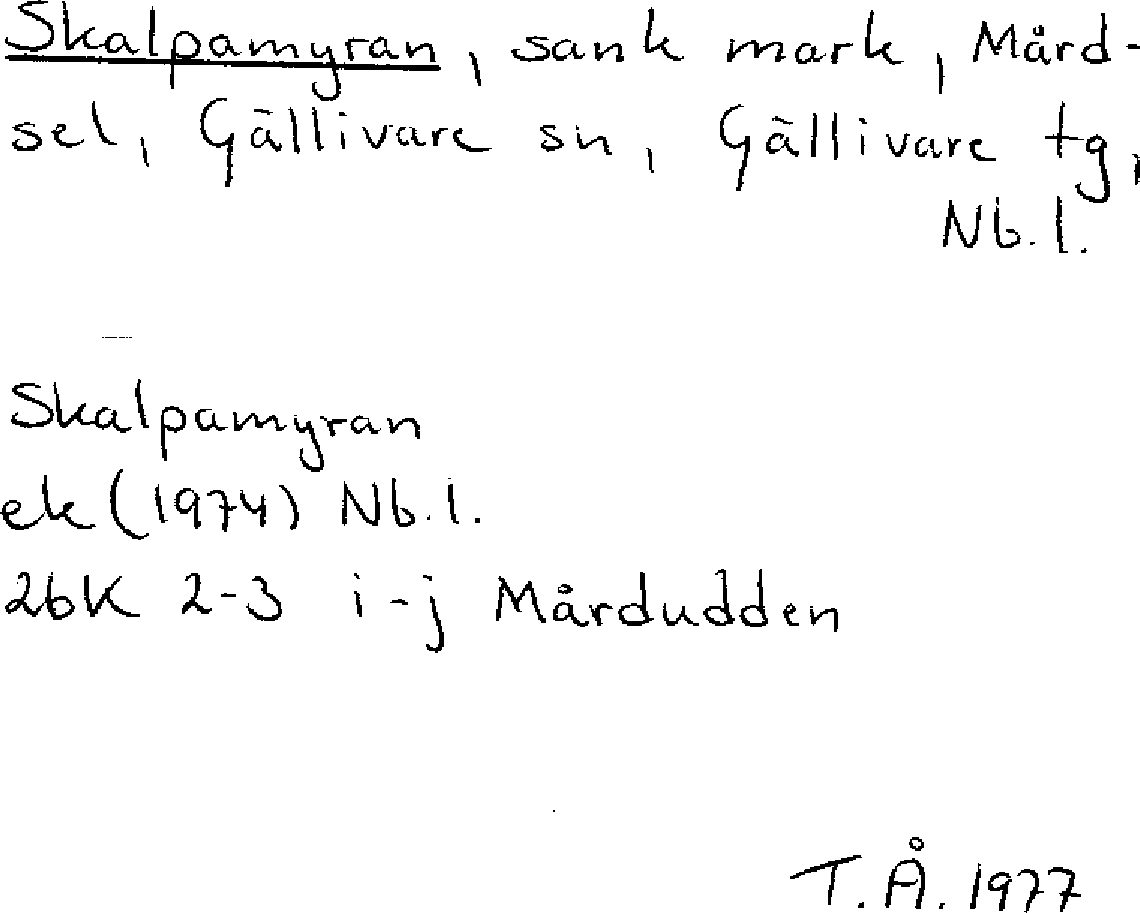 Skalpamyran, sank mark, Mård-
sel, Gällivare sn, Gällivare tg,
Nb.l.
Skalpamyran
ek (1974) Nb.l.
26K 2-3 i-j Mårdudden
T.Å. 1977